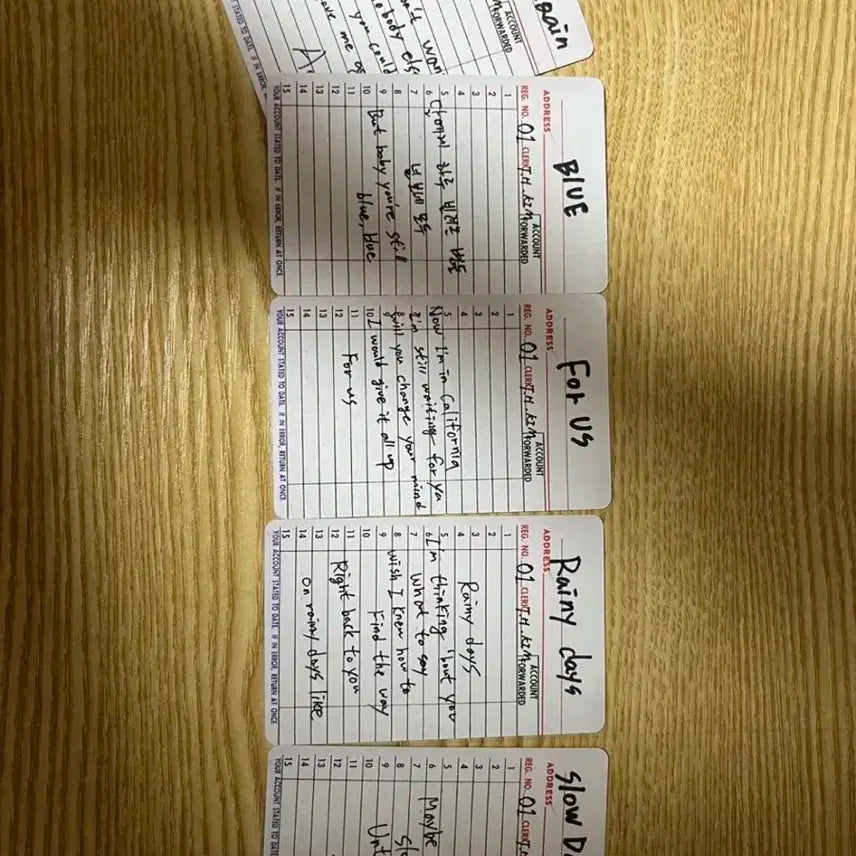 gain
ACCOUNT
FORWARDED
obody else
you could
me
STATED TO DATE. IF IN ERROR,
BLUE
ADDRESS
ACCOUNT
FORWARDED
REG. NO. 01 CLERK T.H.KIM
1
2
3
4
5 하루
6
7
8
9 But baby you're still
10 blue, blue
11
12
13
14
15
YOUR ACCOUNT STATED TO DATE. IF IN ERROR, RETURN AT ONCE.
For us
ADDRESS
ACCOUNT
FORWARDED
REG. NO. 01 CLERK T.H.KIM
1
2
3
4
5 Now I'm in California
I'm still waiting for ya
Will you change your mind
10 I would give it all up
11 For us
12
13
14
15
YOUR ACCOUNT STATED TO DATE. IF IN ERROR, RETURN AT ONCE.
Rainy days
ADDRESS
ACCOUNT
FORWARDED
REG. NO. 01 CLERK T.H.KIM
1
2
3
4 Rainy days
5
6 I'm thinking 'bout you
7 What to say
8 wish I knew how to
9 Find the way
10
11 Right back to you
12
13 on rainy days like
14
15
YOUR ACCOUNT STATED TO DATE. IF IN ERROR, RETURN AT ONCE.
Slow D
ADDRESS
REG. NO. 01 CLER
1
2
3
4
5
6 Maybe
7
8 Sl
9
10 Unt
11
12
13
14
15
YOUR ACCOUNT STATED TO DA